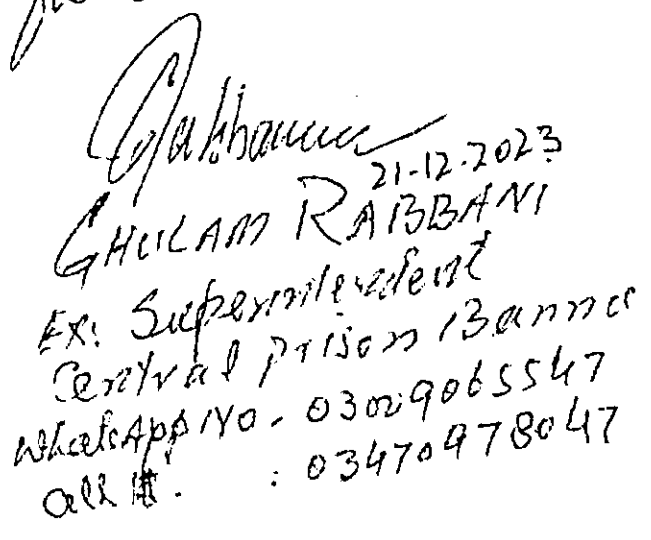 21-12-2023
GHULAM RABBANI
Ex: Superintendent
Central prison Bannu
WhatsApp No. 03029065547
: 03470978047